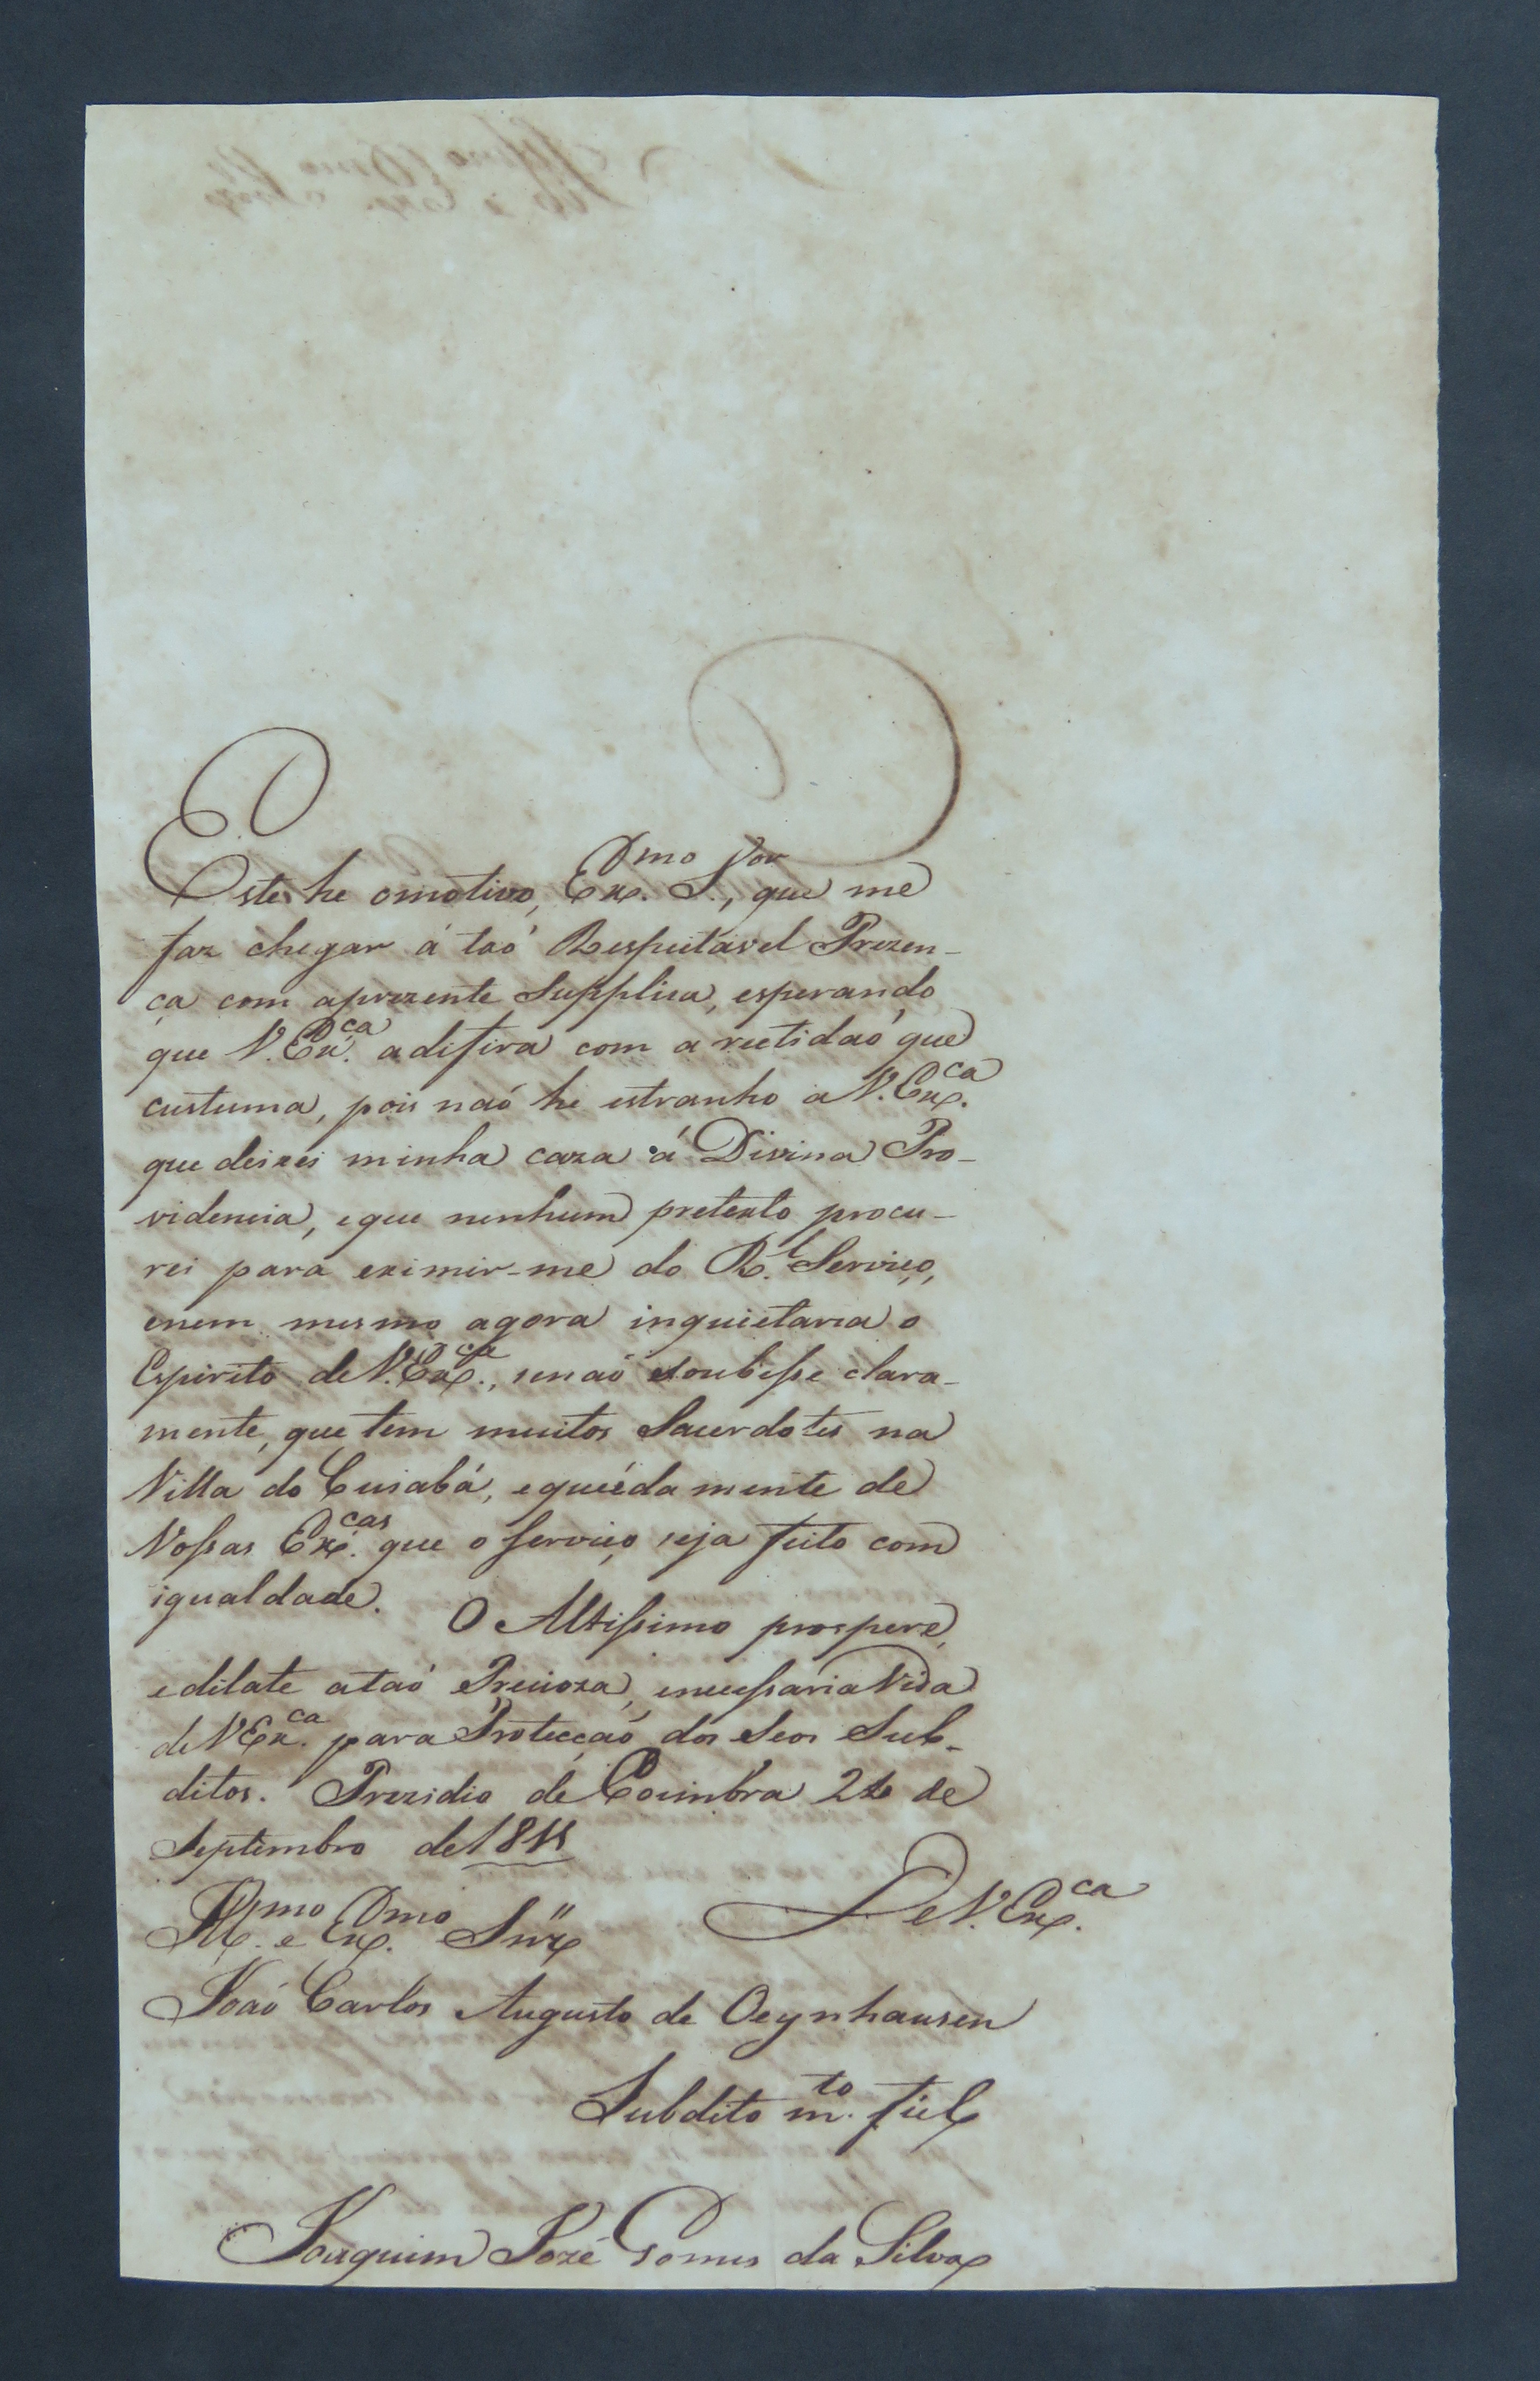 Este he omotivo, Ex.mo S.or, que me
faz chegar á taó Respeitavel Prezen-
ça com aprezente Supplica, esperando
que V. Ex.ca adifira com a rectidaó que
custuma, pois naó he estranho a V. Ex.ca
que deixei minha caza á Divina Pro-
videncia, eque nenhum pretexto procu-
rei para eximir-me do R.l Serviço,
enem mesmo agora inquietaria o
Espirito de V. Ex.ca, senaó soubesse clara-
mente, que tem muitos Sacerdotes na
Villa do Cuiabá, equeéda mente de
Vossas Ex.cas que o serviço seja feito com
igualdade. O Altissimo prospere,
edilate ataó Precioza, enecessaria Vida
de V Ex.ca para Protecçaó dos Seos Sub-
ditos. Prezidio de Coimbra de
Septembro de 1811
Ill.mo e Ex.mo Snr. De V. Ex.ca
Joaó Carlos Augusto de Oeynhausen
Subdito m.to fiel
Joaquim Jozé Gomes da Silva